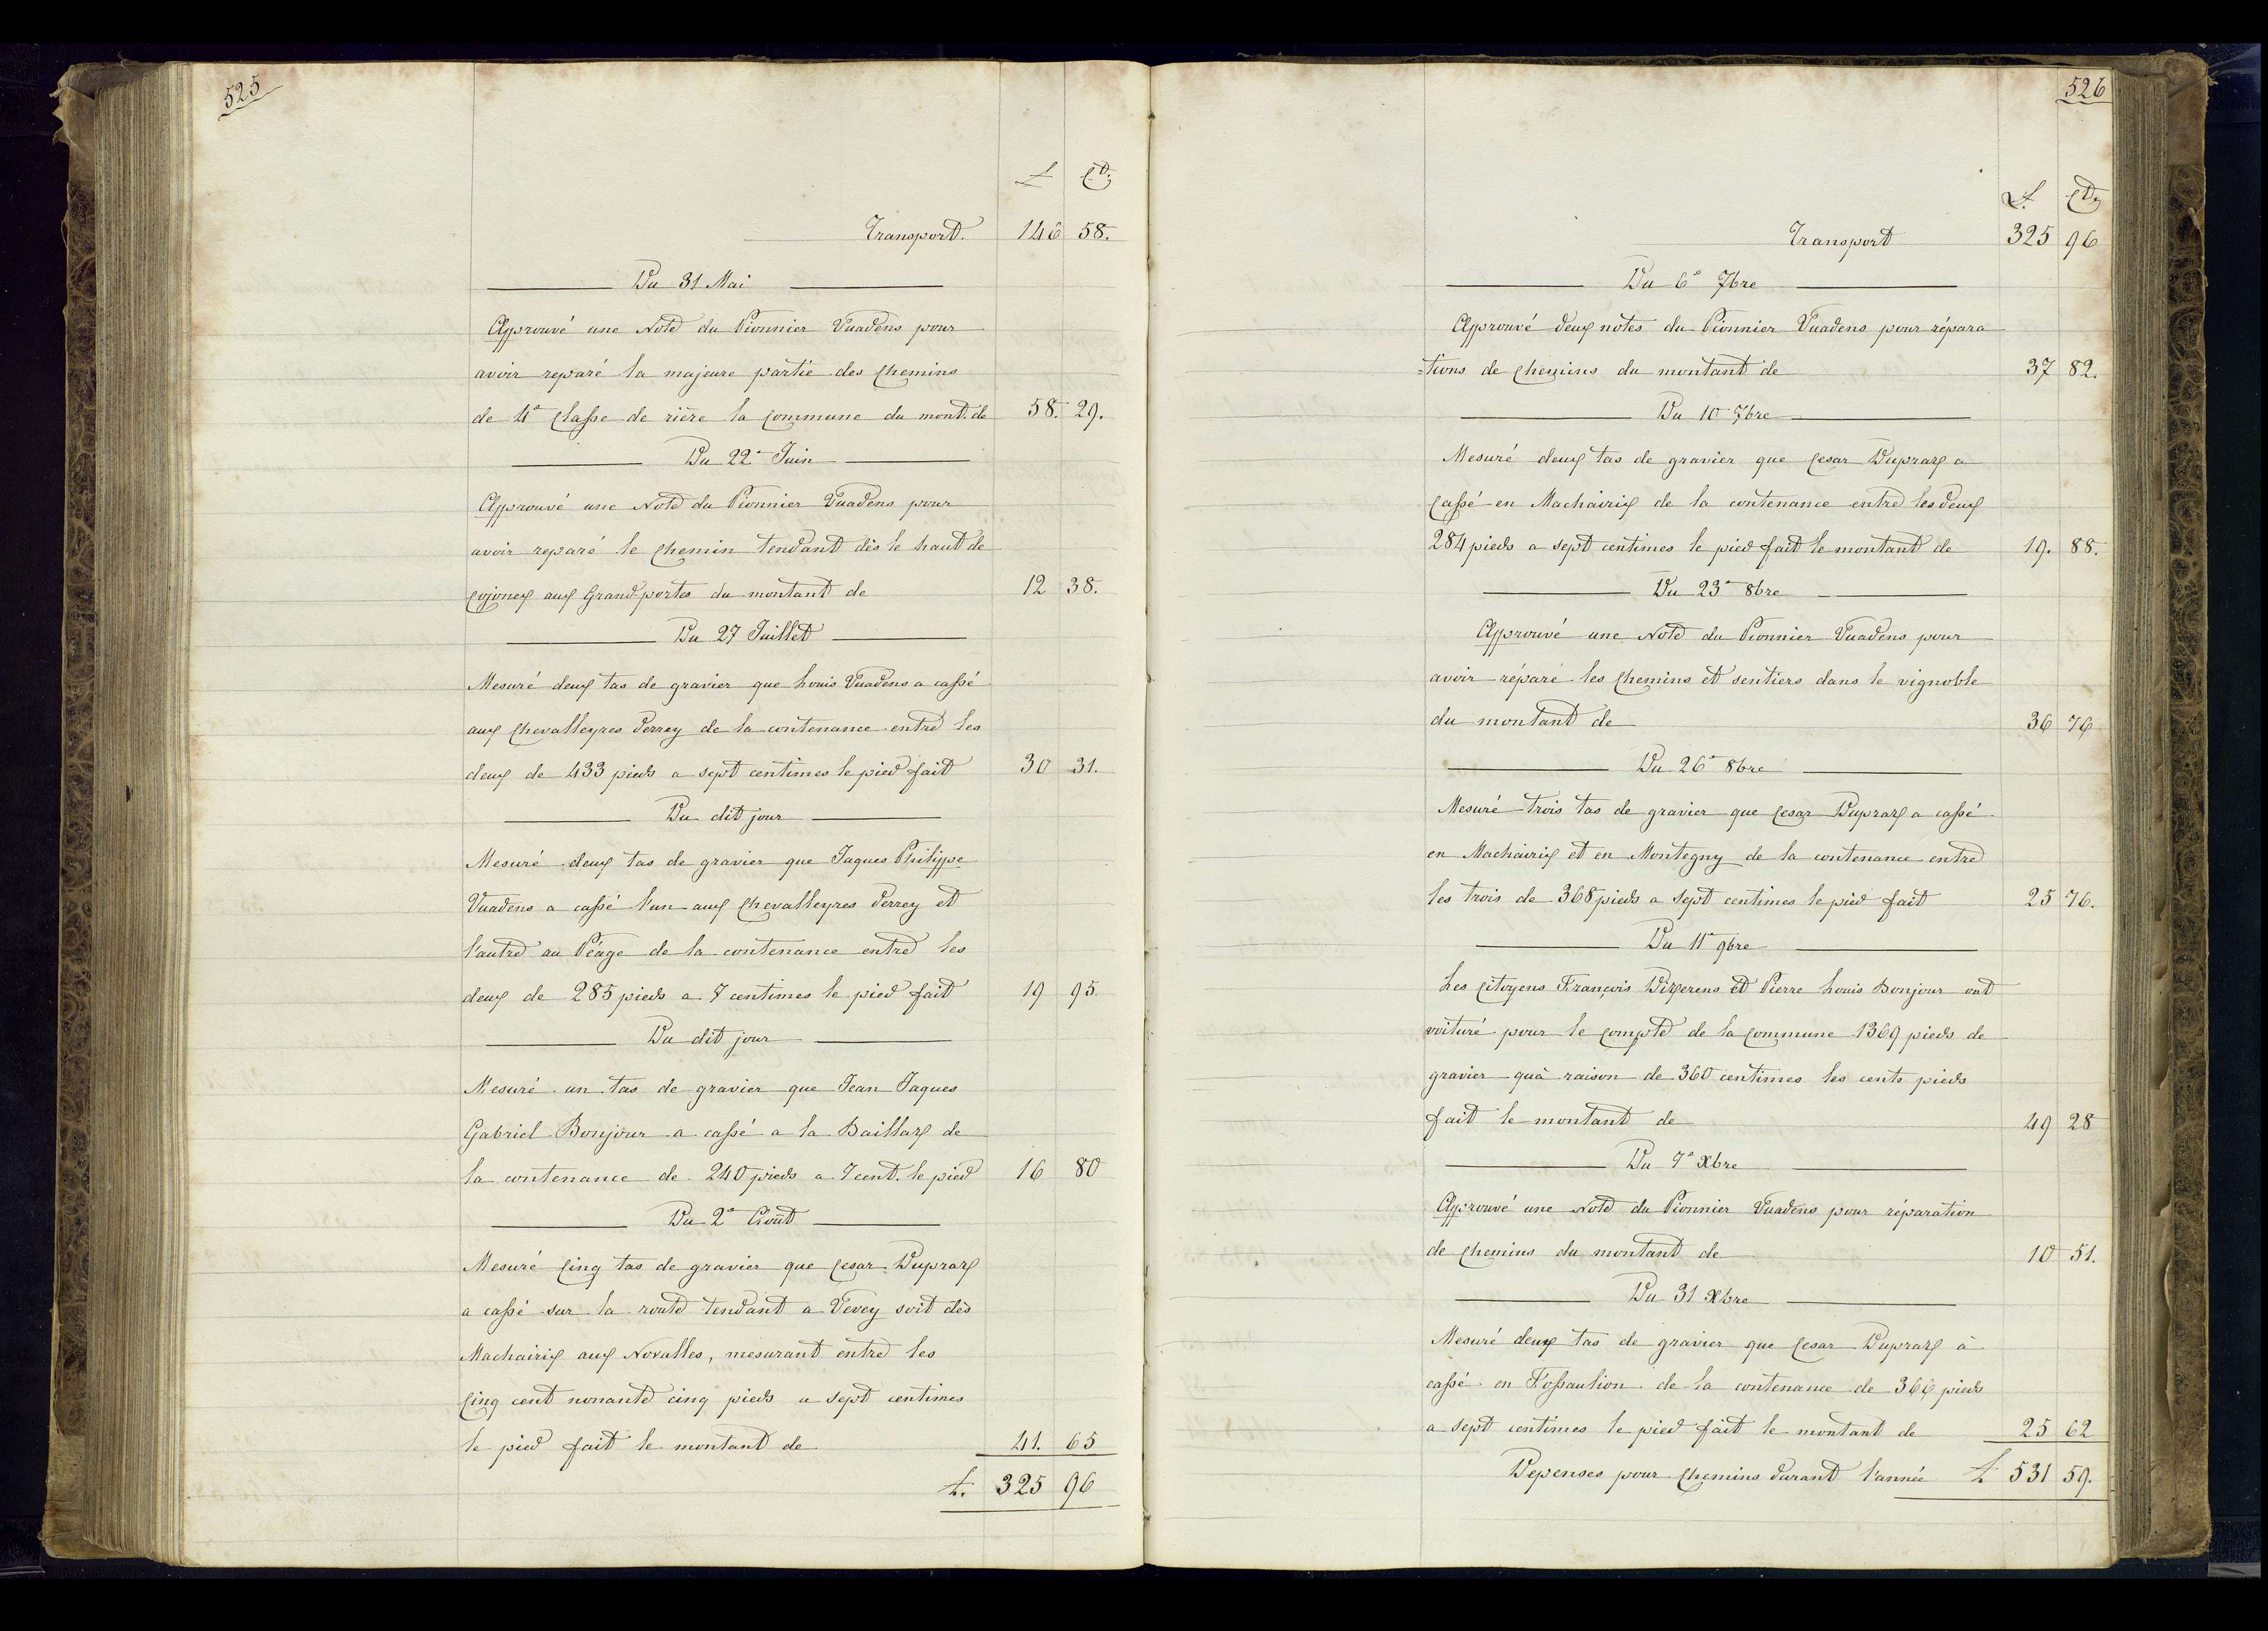 525
£ Ct.
Transport. 146 58.
Du 31 Mai
Approuvé une Note du Pionnier Vuadens pour
avoir reparé la majeure partie des Chemins
de 4e Classe de rière la Commune du mont. de 58. 29.
Du 22e Juin
Approuvé une Note du Pionnier Vuadens pour
avoir reparé le Chemin tendant dès le haut de
Cojonex aux Grand portes du montant de 12 38.
Du 27 Juillet
Mesuré deux tas de gravier que Louis Vuadens a cassé
aux Chevalleyres derrey de la contenance entre les
deux de 433 pieds a sept centimes le pied fait 30 31.
Du dit jour
Mesuré deux tas de gravier que Jaques Philippe
Vuadens a cassé l'un aux Chevalleyres derrey et
l'autre au Péage de la contenance entre les
deux de 285 pieds a 7 centimes le pied fait 19 95.
Du dit jour
Mesuré un tas de gravier que Jean Jaques
Gabriel Bonjour a cassé a la Baillaz de
la contenance de 240 pieds a 7 cent. le pied 16 80
Du 2e Août
Mesuré Cinq tas de gravier que Cesar Dupraz
a cassé sur la route tendant a Vevey soit dès
Machairix aux Novalles, mesurant entre les
Cinq cent nonante cinq pieds a sept centimes
le pied fait le montant de 41. 65
£. 325 96
526
£. Ct.
Transport 325 96
Du 6e 7bre
Approuvé deux notes du Pionnier Vuadens pour répara
=tions de Chemins du montant de 37 82.
Du 10 7bre
Mesuré deux tas de gravier que Cesar Dupraz a
Cassé en Machairix de la contenance entre les deux
284 pieds a sept centimes le pied fait le montant de 19. 88.
Du 23e 8bre
Approuvé une Note du Pionnier Vuadens pour
avoir réparé les Chemins et sentiers dans le vignoble
du montant de 36 76
Du 26e 8bre
Mesuré trois tas de gravier que Cesar Dupraz a cassé
en Machairix et en Montegny de la contenance entre
les trois de 368 pieds a sept centimes le pied fait 25 76.
Du 11e 9bre
Les Citoyens François Dizerens et Pierre Louis Bonjour ont
voituré pour le Compte de la Commune 1369 pieds de
gravier qu'à raison de 360 centimes les cents pieds
fait le montant de 49 28
Du 7e Xbre
Approuvé une Note du Pionnier Vuadens pour réparation
de Chemins du montant de 10 51.
Du 31 Xbre
Mesuré deux tas de gravier que Cesar Dupraz à
cassé en Fossaulion de la contenance de 366 pieds
a sept centimes le pied fait le montant de 25 62
Depenses pour Chemins durant l'année £ 531 59.